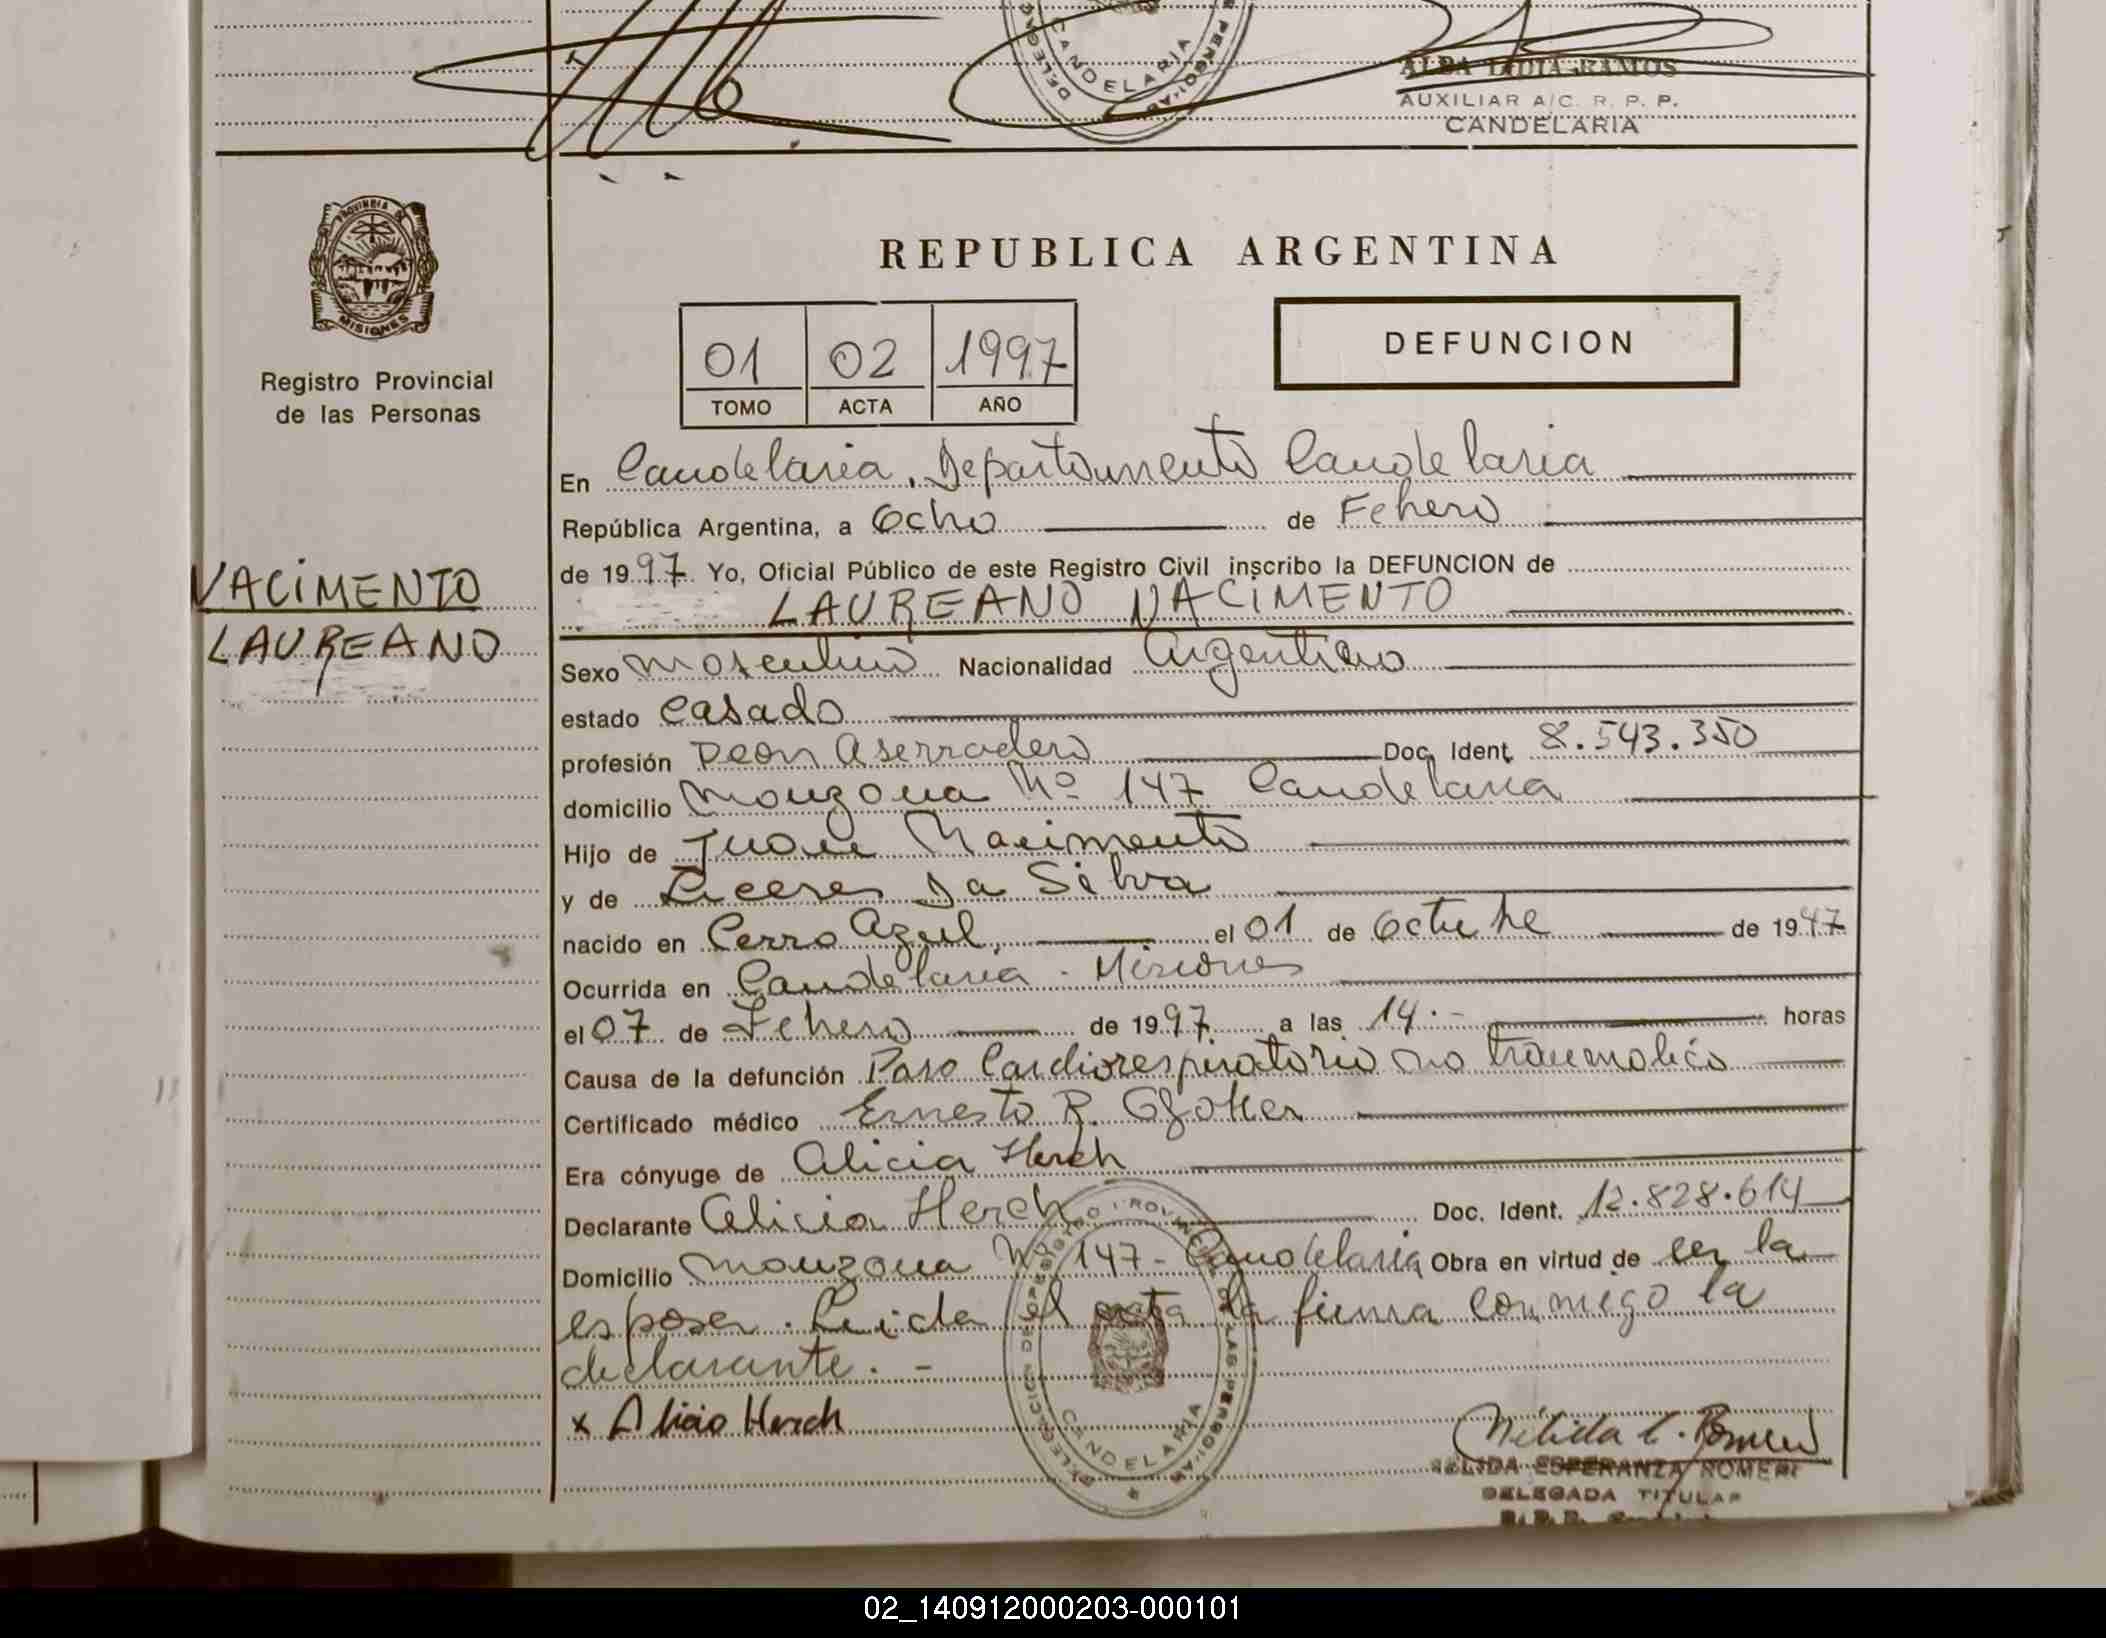 DELEGAC
CANDELARIA
ALBA LIDIA RAMOS
AUXILIAR A/C. R. P. P.
CANDELARIA
PROVINCIA DE
MISIONES
Registro Provincial
de las Personas
REPUBLICA ARGENTINA
01 02 1997
TOMO ACTA AÑO
DEFUNCION
En Candelaria, Departamento Candelaria
República Argentina, a Ocho de Febrero
de 1997 Yo, Oficial Público de este Registro Civil inscribo la DEFUNCION de
NACIMENTO
LAUREANO NACIMENTO
LAUREANO
Sexo masculino Nacionalidad Argentino
estado Casado
profesión Peon Aserradero Doc. Ident. 8.543.350
domicilio manzana Nº 147 Candelaria
Hijo de Juan Nacimento
y de Liceres Da Silva
nacido en Cerro Azul, el 01 de Octubre de 1947
Ocurrida en Candelaria - Misiones
el 07 de Febrero de 1997 a las 14.- horas
Causa de la defunción Paro Cardiorespiratorio no traumatico
Certificado médico Ernesto R.
Era cónyuge de Alicia Herch
Declarante Alicia Herch Doc. Ident. 12.828.614
Domicilio manzana Nº 147 - Candelaria Obra en virtud de ser la
esposa. Leida el acta la firma conmigo la
declarante. -
x Alicia Herch
CANDELARIA
Nélida E. Romero
NELIDA ESPERANZA ROMERO
DELEGADA TITULAR
02_140912000203-000101